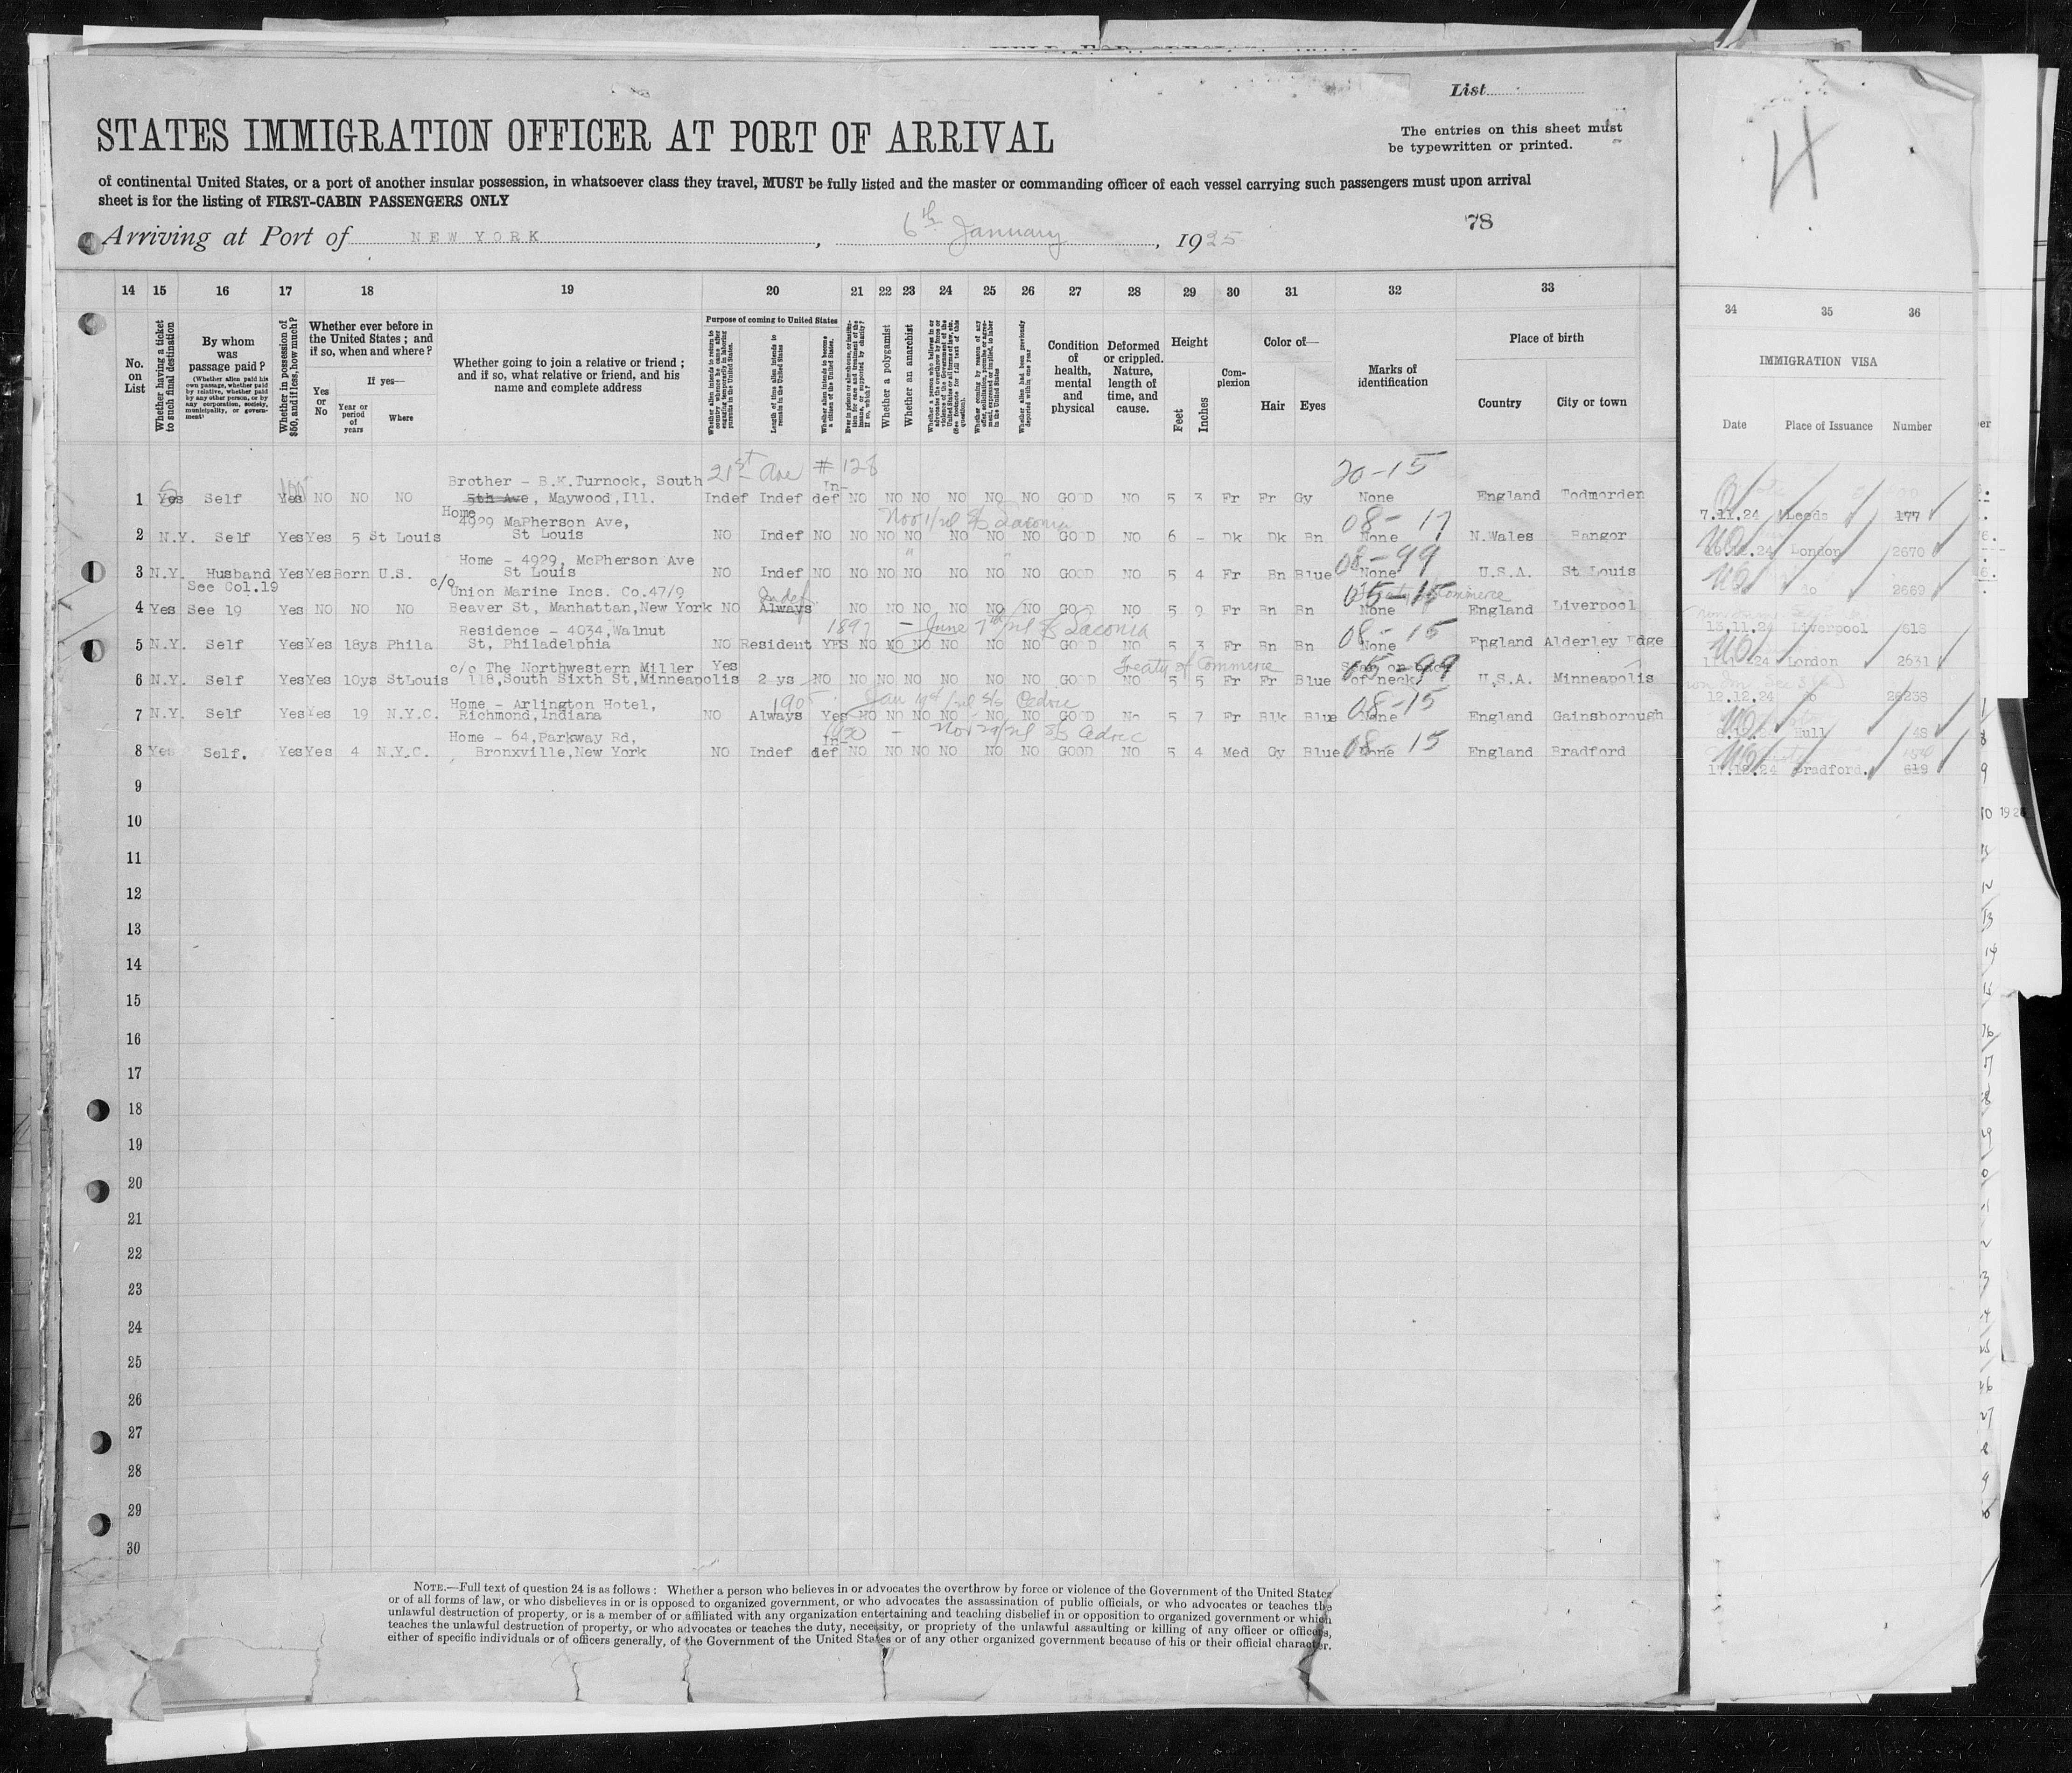 List
STATES IMMIGRATION OFFICER AT PORT OF ARRIVAL
The entries on this sheet must
be typewritten or printed.
of continental United States, or a port of another insular possession, in whatsoever class they travel, MUST be fully listed and the master or commanding officer of each vessel carrying such passengers must upon arrival
sheet is for the listing of FIRST-CABIN PASSENGERS ONLY
Arriving at Port of NEW YORK, 6th January, 1925
78
14 15 16 17 18 19 20 21 22 23 24 25 26 27 28 29 30 31 32 33 34 35 36
No. on List
Whether having a ticket to such final destination
By whom was passage paid?
(Whether alien paid his own passage, whether paid by relative, whether paid by any other person, or by any corporation, society, municipality, or government)
Whether in possession of $50, and if less, how much?
Whether ever before in the United States; and if so, when and where?
Yes or No
If yes—
Year or period of years
Where
Whether going to join a relative or friend; and if so, what relative or friend, and his name and complete address
Purpose of coming to United States
Whether alien intends to return to country whence he came after engaging temporarily in laboring pursuits in the United States.
Length of time alien intends to remain in the United States
Whether alien intends to become a citizen of the United States.
Whether a polygamist
Whether an anarchist
Condition of health, mental and physical
Deformed or crippled. Nature, length of time, and cause.
Height
Feet
Inches
Complexion
Color of—
Hair Eyes
Marks of identification
Place of birth
Country
City or town
IMMIGRATION VISA
Date Place of Issuance Number
21st Ave # 128
20-15
Brother - B.K.Turnock, South
1 Yes Self Yes NO NO NO 5th Ave, Maywood, Ill. Indef Indef In-def NO NO NO NO NO NO GOOD NO 5 3 Fr Fr Gy None England Todmorden
7.11.24 Leeds 177
Nov 1/21 S/S Laconia
08-17
Home 4929 MaPherson Ave,
2 N.Y. Self Yes Yes 5 St Louis St Louis NO Indef NO NO NO NO NO NO NO GOOD NO 6 - Dk Dk Bn None N.Wales Bangor
London 2670
08-99
Home - 4929, McPherson Ave
3 N.Y. Husband Yes Yes Born U.S. St Louis NO Indef NO NO NO NO NO NO NO GOOD NO 5 4 Fr Bn Blue None U.S.A. St Louis
do 2669
See Col.19 c/o Union Marine Incs. Co.47/9
Indef
05-15
4 Yes See 19 Yes NO NO NO Beaver St, Manhattan, New York NO Always NO NO NO NO NO NO GOOD NO 5 9 Fr Bn Bn None England Liverpool
13.11.24 Liverpool 618
1897 - June S/S Laconia
08-15
Residence - 4034, Walnut
5 N.Y. Self Yes Yes 18ys Phila St, Philadelphia NO Resident YES NO NO NO NO NO NO GOOD NO 5 3 Fr Bn Bn None England Alderley Edge
London 2631
Treaty of Commerce
05-99
c/o The Northwestern Miller Yes
6 N.Y. Self Yes Yes 10ys StLouis 118, South Sixth St, Minneapolis 2 ys NO NO NO NO NO NO NO GOOD NO 5 5 Fr Fr Blue of neck U.S.A. Minneapolis
12.12.24 do 26238
1905 - Jan S/S Cedric
08-15
Home - Arlington Hotel,
7 N.Y. Self Yes Yes 19 N.Y.C. Richmond, Indiana NO Always Yes NO NO NO NO NO NO GOOD No 5 7 Fr Blk Blue None England Gainsborough
Hull 48
1920 - Nov S/S Cedric
08-15
Home - 64, Parkway Rd,
8 Yes Self. Yes Yes 4 N.Y.C. Bronxville, New York NO Indef In-def NO NO NO NO NO NO GOOD NO 5 4 Med Gy Blue None England Bradford
17.12.24 Bradford. 619
9
10
11
12
13
14
15
16
17
18
19
20
21
22
23
24
25
26
27
28
29
30
NOTE.—Full text of question 24 is as follows: Whether a person who believes in or advocates the overthrow by force or violence of the Government of the United States
or of all forms of law, or who disbelieves in or is opposed to organized government, or who advocates the assassination of public officials, or who advocates or teaches the
unlawful destruction of property, or is a member of or affiliated with any organization entertaining and teaching disbelief in or opposition to organized government or which
teaches the unlawful destruction of property, or who advocates or teaches the duty, necessity, or propriety of the unlawful assaulting or killing of any officer or officers,
either of specific individuals or of officers generally, of the Government of the United States or of any other organized government because of his or their official character.